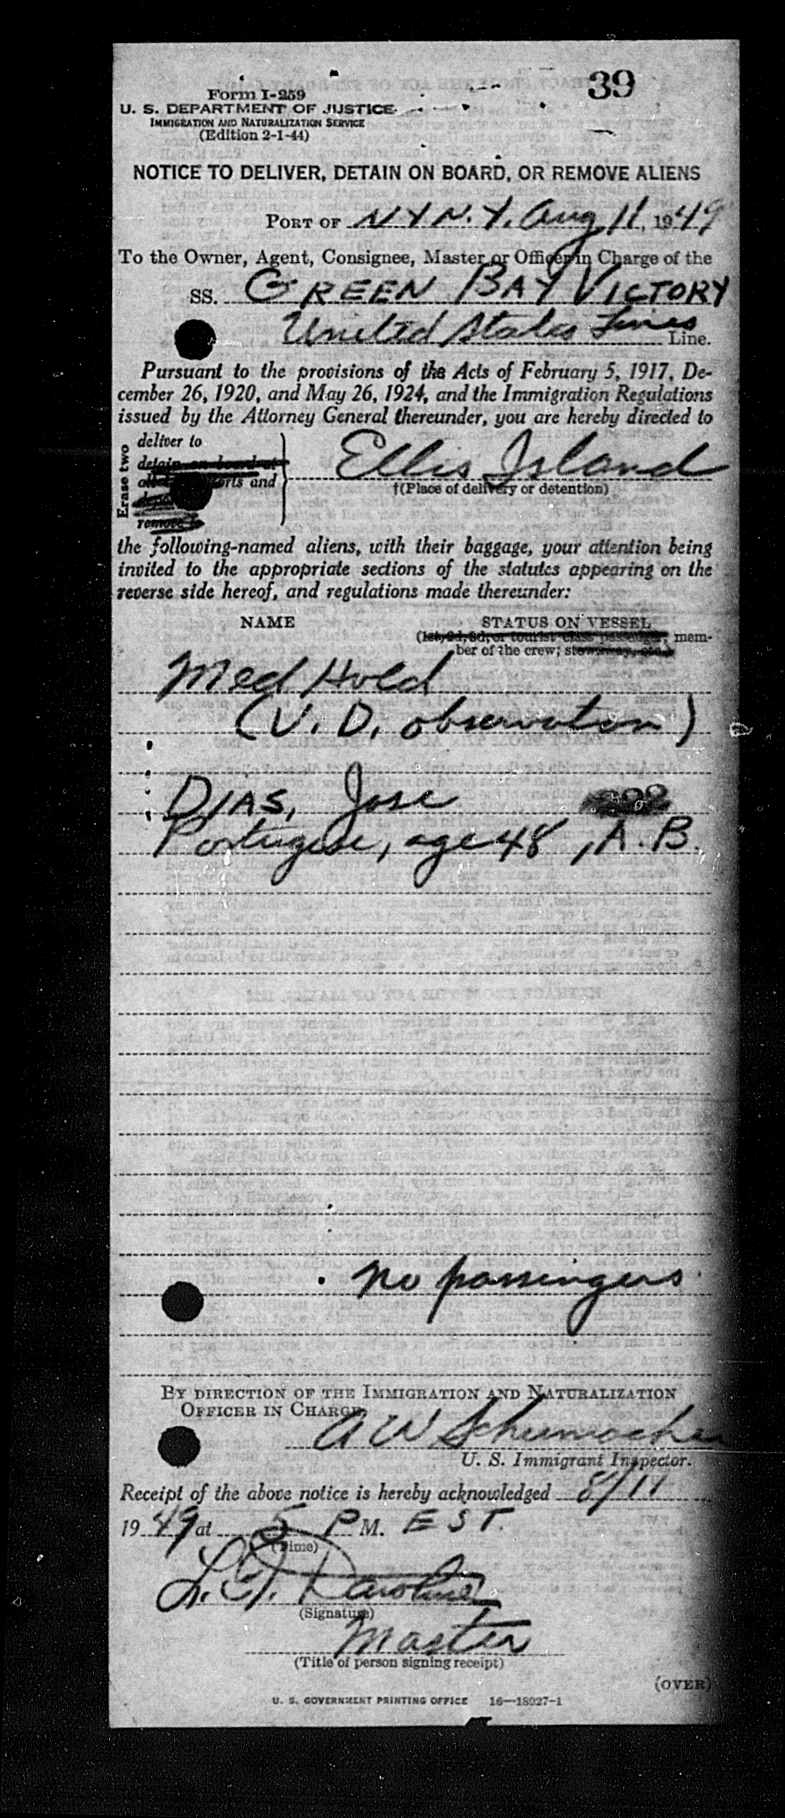 39
Form I-259
U. S. DEPARTMENT OF JUSTICE
IMMIGRATION AND NATURALIZATION SERVICE
(Edition 2-1-44)
NOTICE TO DELIVER, DETAIN ON BOARD, OR REMOVE ALIENS
PORT OF N Y N. Y. Aug 11, 1949
To the Owner, Agent, Consignee, Master or Officer in Charge of the
SS. GREEN BAY VICTORY
United States Lines Line.
Pursuant to the provisions of the Acts of February 5, 1917, De-
cember 26, 1920, and May 26, 1924, and the Immigration Regulations
issued by the Attorney General thereunder, you are hereby directed to
Erase two
deliver to
detain on board at
Ellis Island
ports and
†(Place of delivery or detention)
remove
the following-named aliens, with their baggage, your attention being
invited to the appropriate sections of the statutes appearing on the
reverse side hereof, and regulations made thereunder:
NAME STATUS ON VESSEL
(1st, 2d, 3d, or tourist class passenger; mem-
ber of the crew; stowaway, etc.)
Med Hold
(V. D. observation)
DIAS, Jose
Portugese, age 48, A. B.
No passingers
BY DIRECTION OF THE IMMIGRATION AND NATURALIZATION
OFFICER IN CHARGE
A W Schumacher
U. S. Immigrant Inspector.
Receipt of the above notice is hereby acknowledged 8/11
1949 at 5 P M. E S T.
(Time)
L.
(Signature)
Master
(Title of person signing receipt)
(OVER)
U. S. GOVERNMENT PRINTING OFFICE 16—18027-1